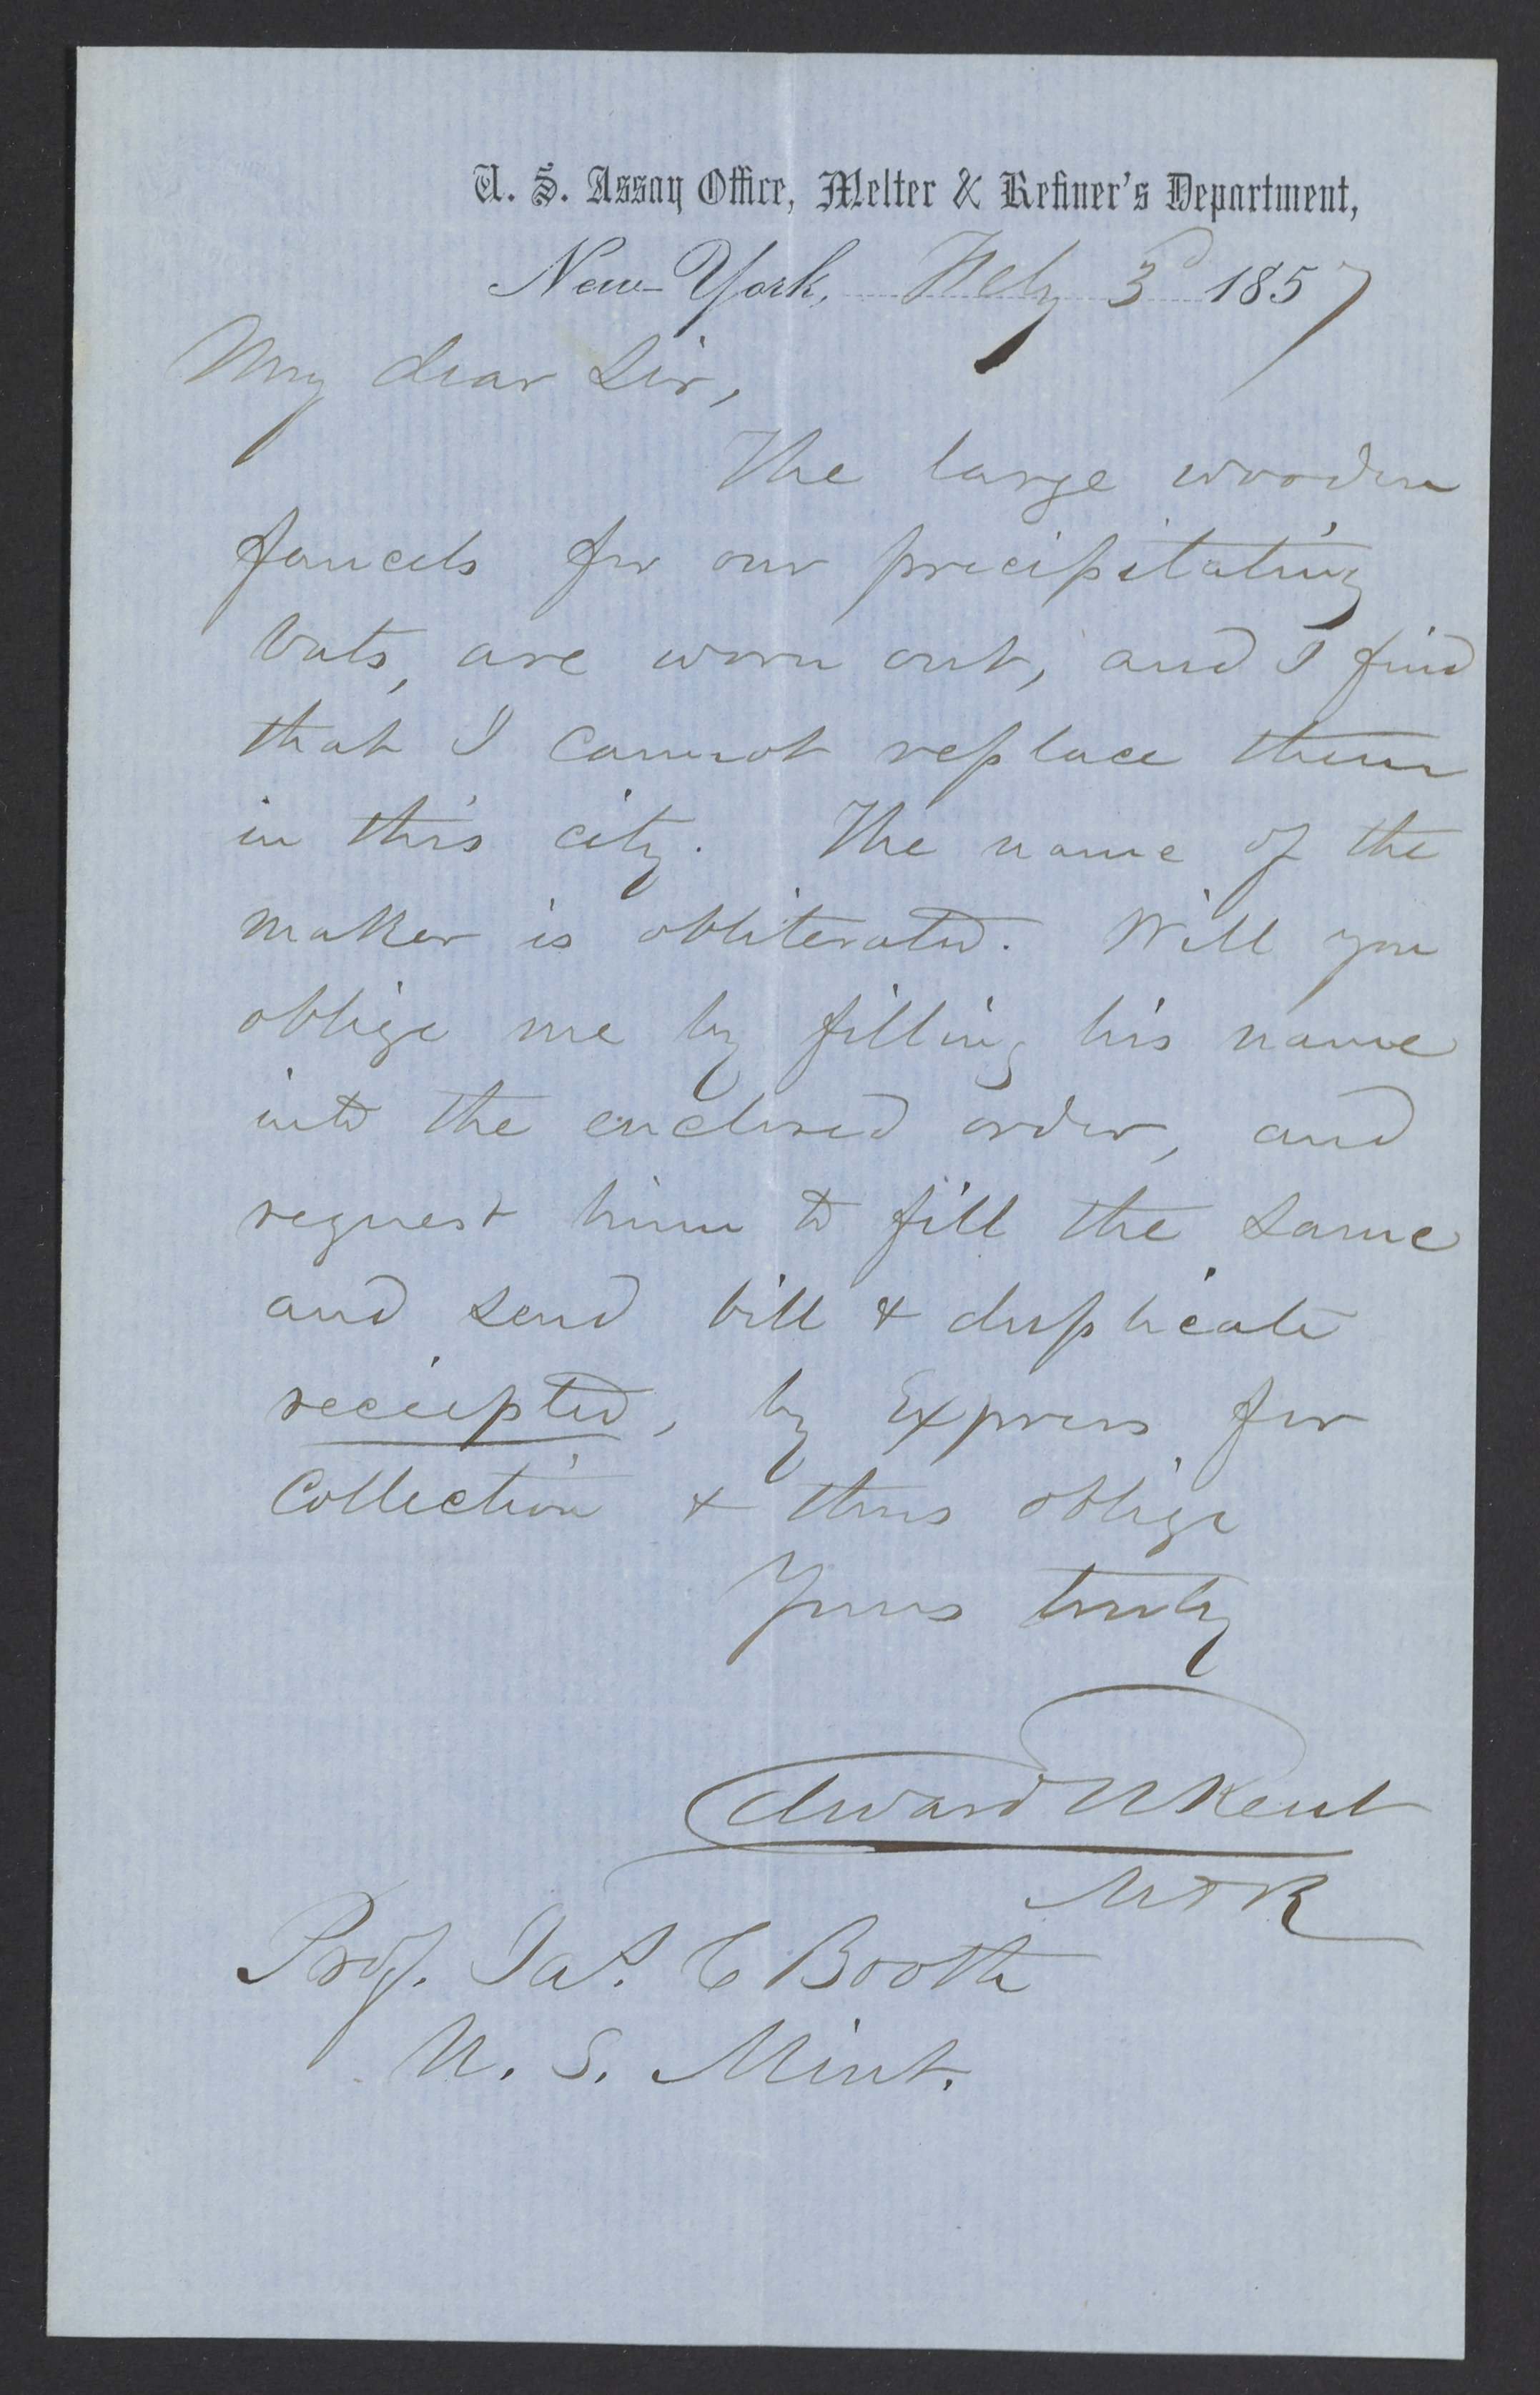 U. S. Assay Office, Melter & Refiner's Department,
New-York, Feby 3d 1857
My dear Sir,
The large wooden
faucets for our precipitating
vats, are worn out, and I find
that I cannot replace them
in this city. The name of the
maker is obliterated. Will you
oblige me by filling his name
into the enclosed order, and
request him to fill the same
and send bill & duplicate
receipted, by Express for
Collection & thus oblige
Yours truly
Edward N Kent
M & R
Prof. Jas. C Booth
U. S. Mint.